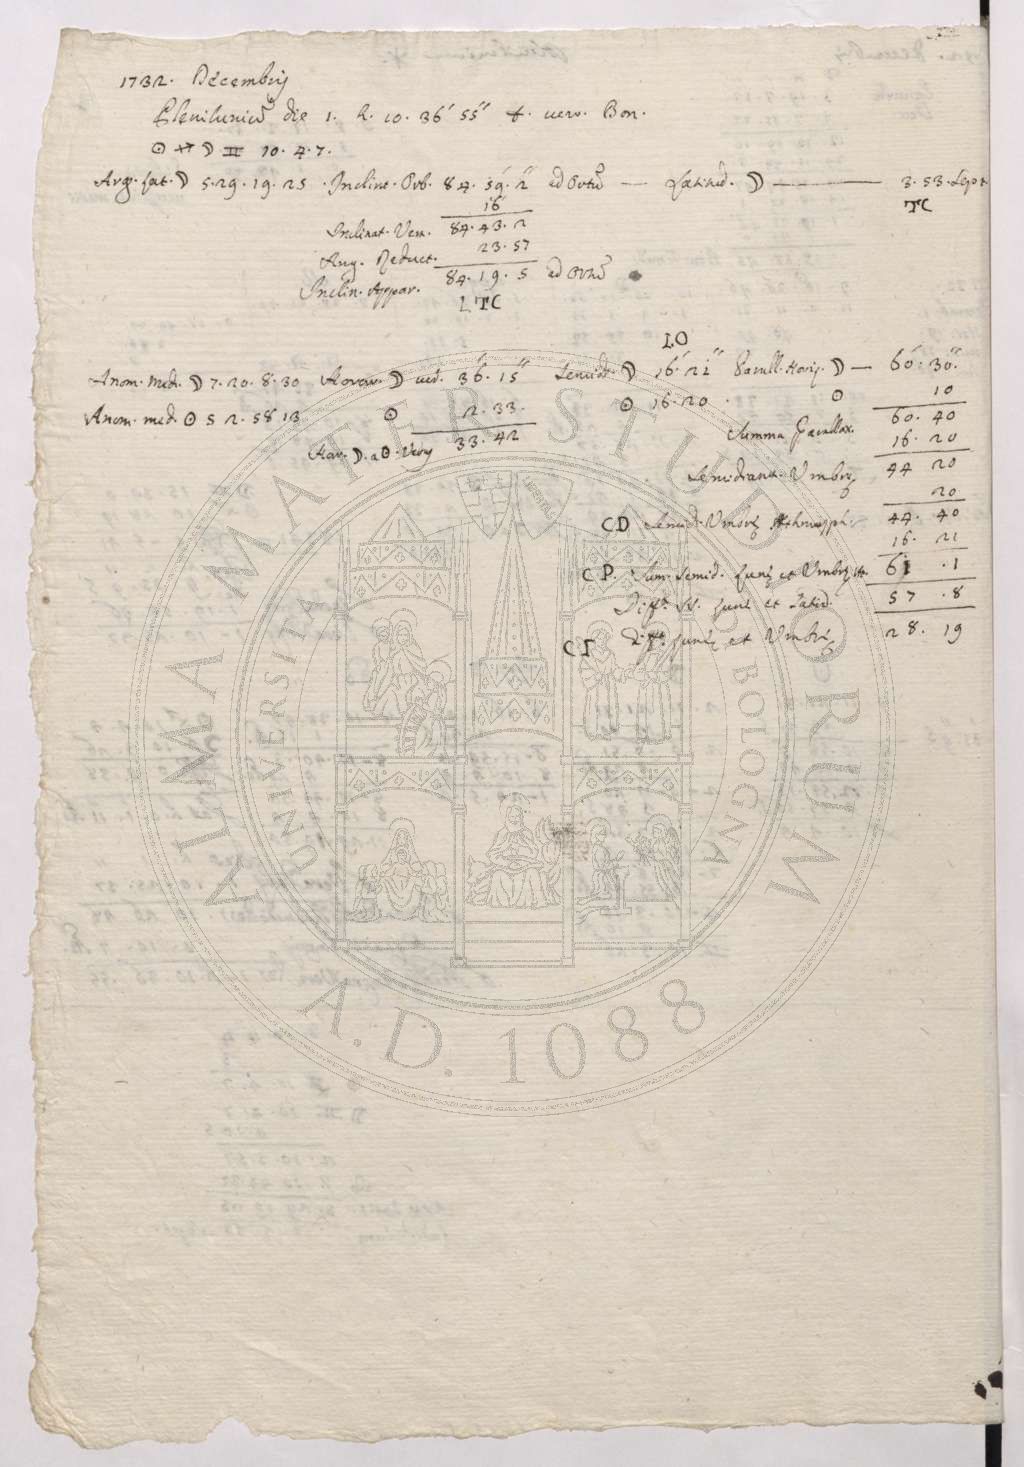 1732. Decembris
Plenilunium die 1. h. 10. 36' 55'' t. vero. Bon.
☉ ♐ ☽ ♊ 10. 4. 7.
Arg. Lat. ☽ 5. 29. 19. 25 . Inclint. Orb. 84. 59'. 2'' ad Ortū — Latitud. ☽ — 3. 53. Sept.
16 TC
Inclinat. Ver. 84. 43. 2
Ang. Reduct. 23. 57
Inclin. Appar. 84. 19. 5 ad Ortū
LTC
LO
Anom. med. ☽ 7. 20. 8. 30 Horar. ☽ ver. 36'. 15'' Semid. ☽ 16'. 21'' Parall. Horiz. ☽ — 60'. 30''.
Anom. med. ☉ 5 2. 58 13 ☉ 2. 33. ☉ 16. 20 . ☉ 10
Hor. ☽. a ☉. Verus 33. 42 Summa Parallax. 60. 40
16. 20
Semidiam. Umbræ 44 20
20
CD Semid. Umbræ Athmosph. 44. 40
16. 21
CP. Sum. Semid. Lunæ et Umbræ 61 . 1
Diff. Lunæ et Latid. 57 . 8
CI Diff. Lunæ et Umbræ 28. 19
ALMA MATER STUDIORUM
UNIVERSITÀ DI BOLOGNA
A.D. 1088